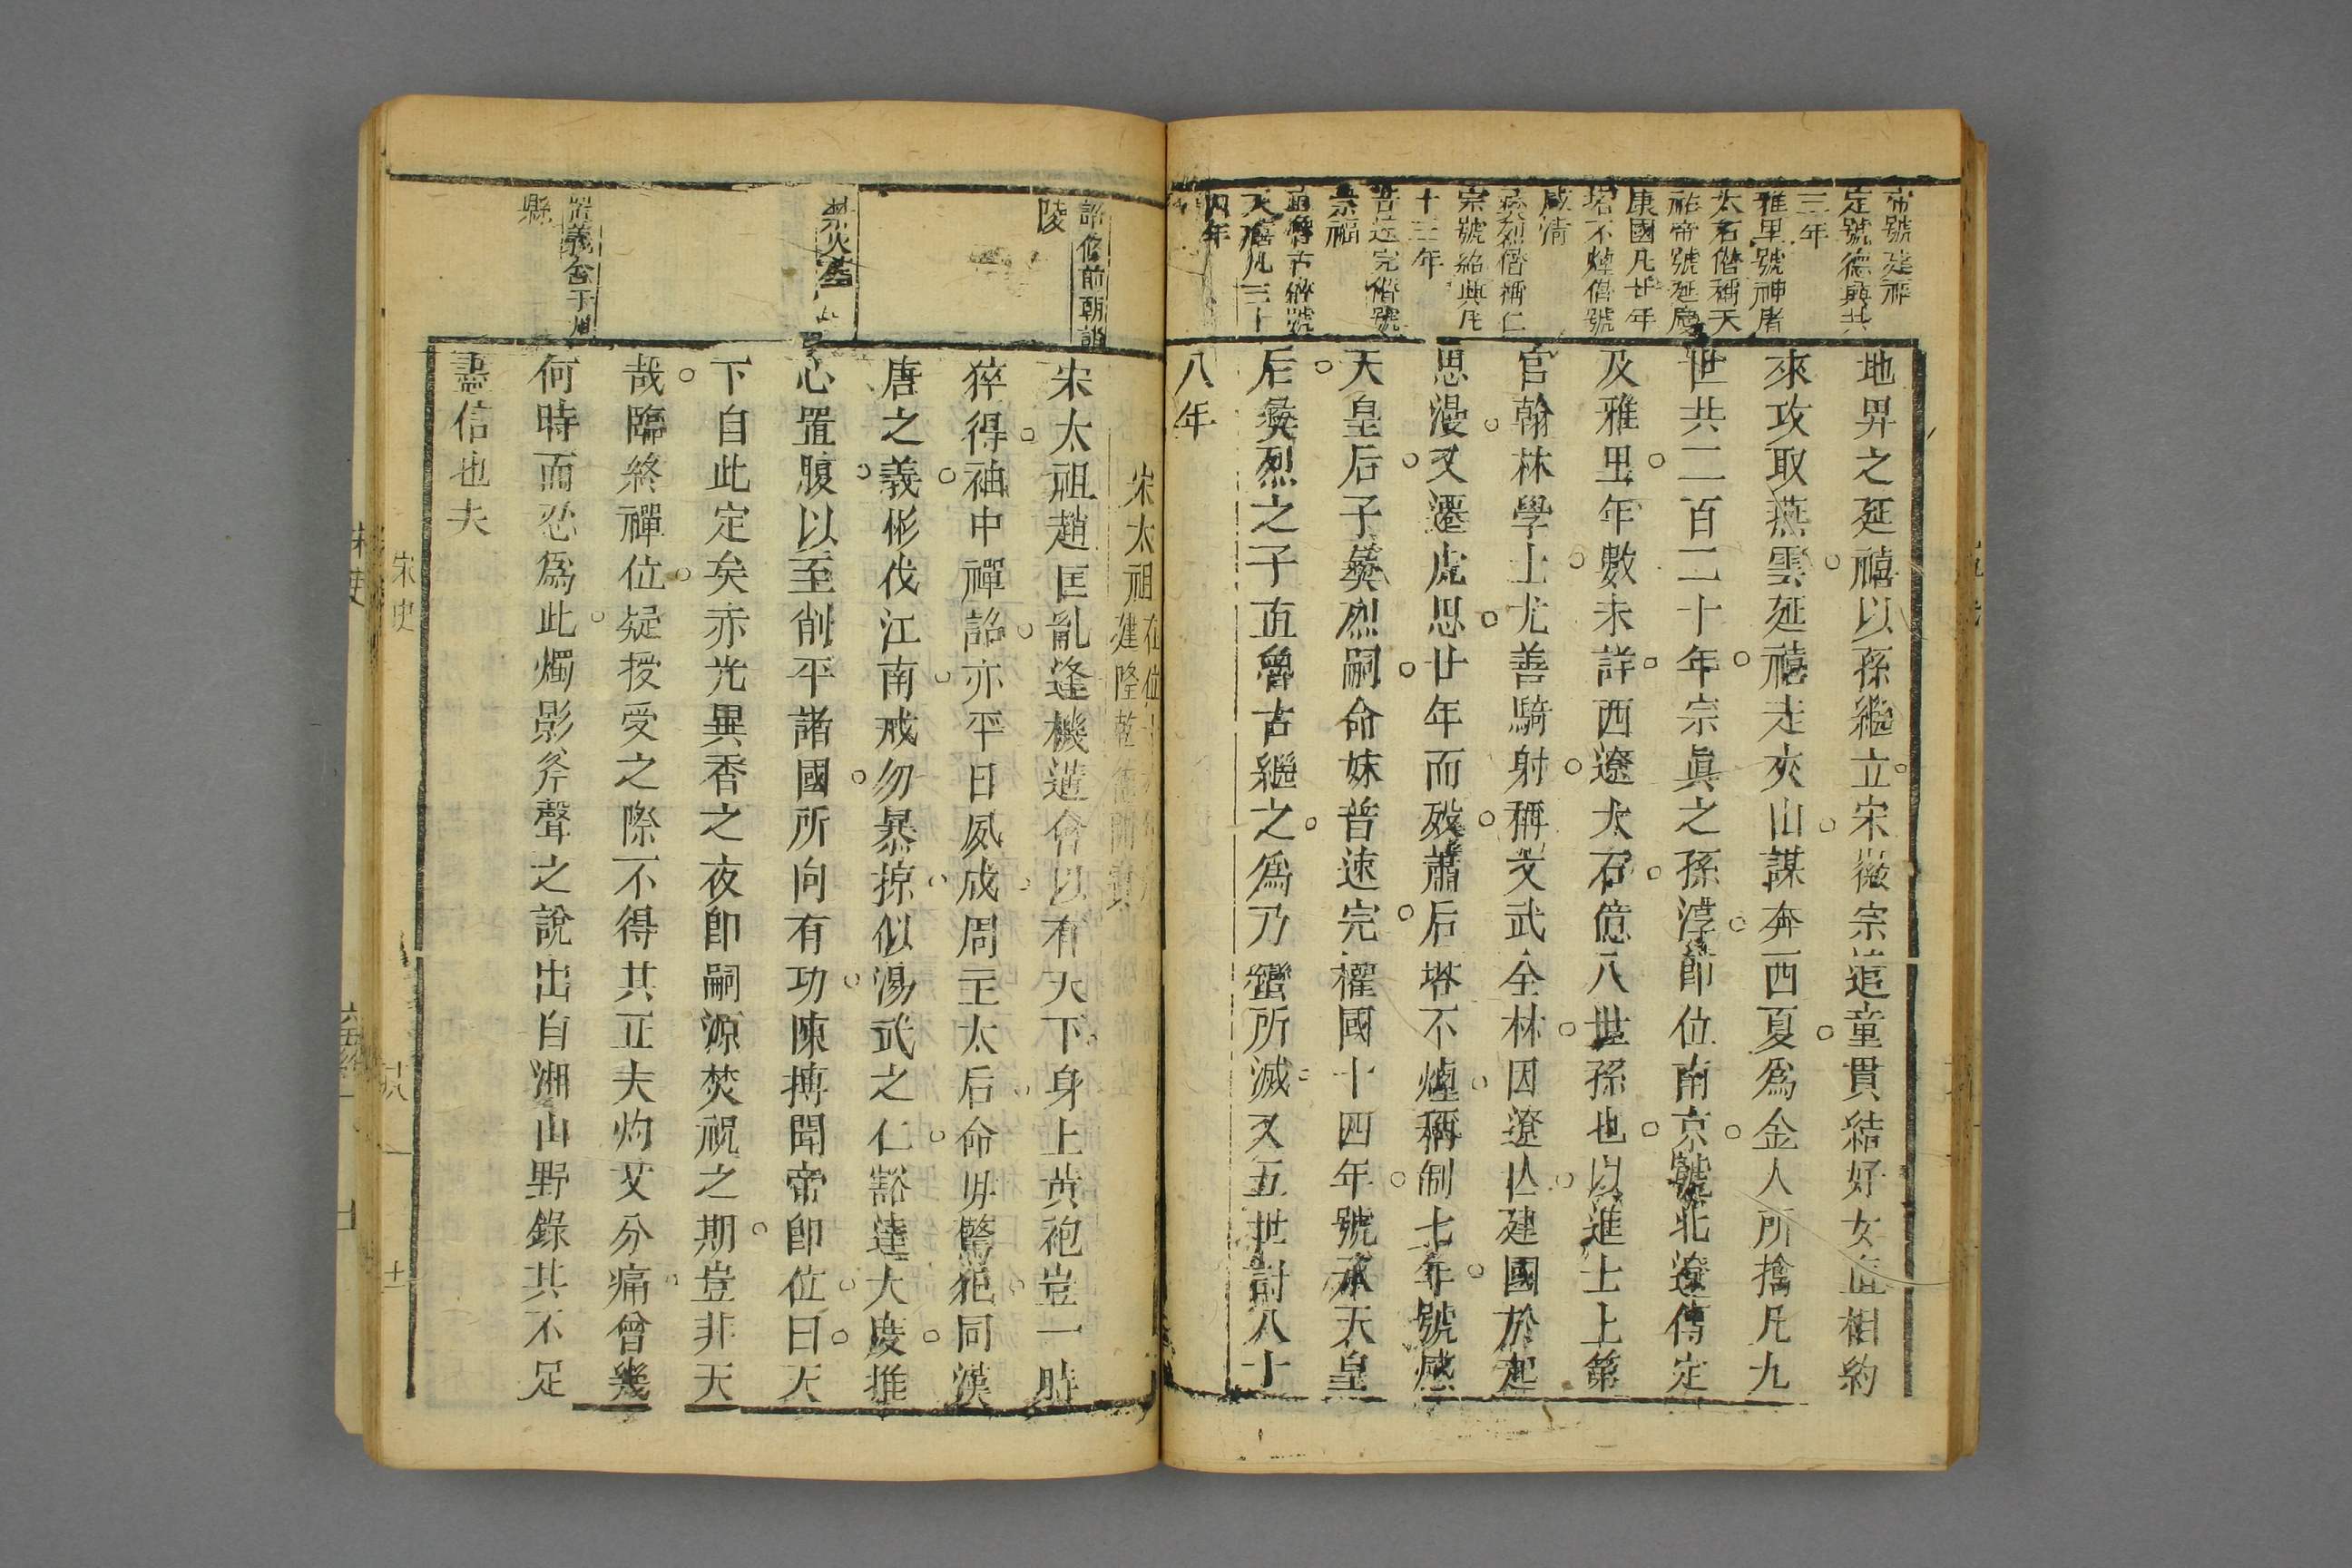 帝號建福
定號德興共
三年
雅里號神曆
大石僭稱天
祐帝號延慶
康國凡廿年
塔不煙僭號
咸清
彜烈僭稱仁
宗號紹興凡
十三年
普速完僭號
崇福
直魯古僭號
天禧凡三十
四年
地畀之延禧以孫繼立宋徽宗遣童貫結好女直相約
來攻取燕雲延禧走夾山謀奔西夏爲金人所擒凡九
世共二百二十年宗眞之孫淳卽位南京號北遼傳定
及雅里年數未詳西遼大石億八世孫也以進士上第
官翰林學士尤善騎射稱文武全林因遼亾建國於起
思漫又遷虎思廿年而殁蕭后塔不煙稱制七年號感
天皇后子彜烈嗣命妹普速完權國十四年號承天皇
后彜烈之子直魯古繼之爲乃蠻所滅又五世討八十
八年
詔修前朝諸
陵
禁火葬
置義倉于州
縣
宋太祖
建隆乾德開寶
宋太祖趙匡亂逢機遘會以有天下身上黃袍豈一時
猝得袖中禪詔亦平日夙成周主太后命毋驚犯同漢
唐之義彬伐江南戒勿暴掠似湯武之仁豁達大度推
心置腹以至削平諸國所向有功陳摶聞帝卽位曰天
下自此定矣赤光異香之夜卽嗣源焚祝之期豈非天
哉臨終禪位疑授受之際不得其正夫灼艾分痛曾幾
何時而忍爲此燭影斧聲之說出自湘山野錄其不足
盡信也夫
宋史